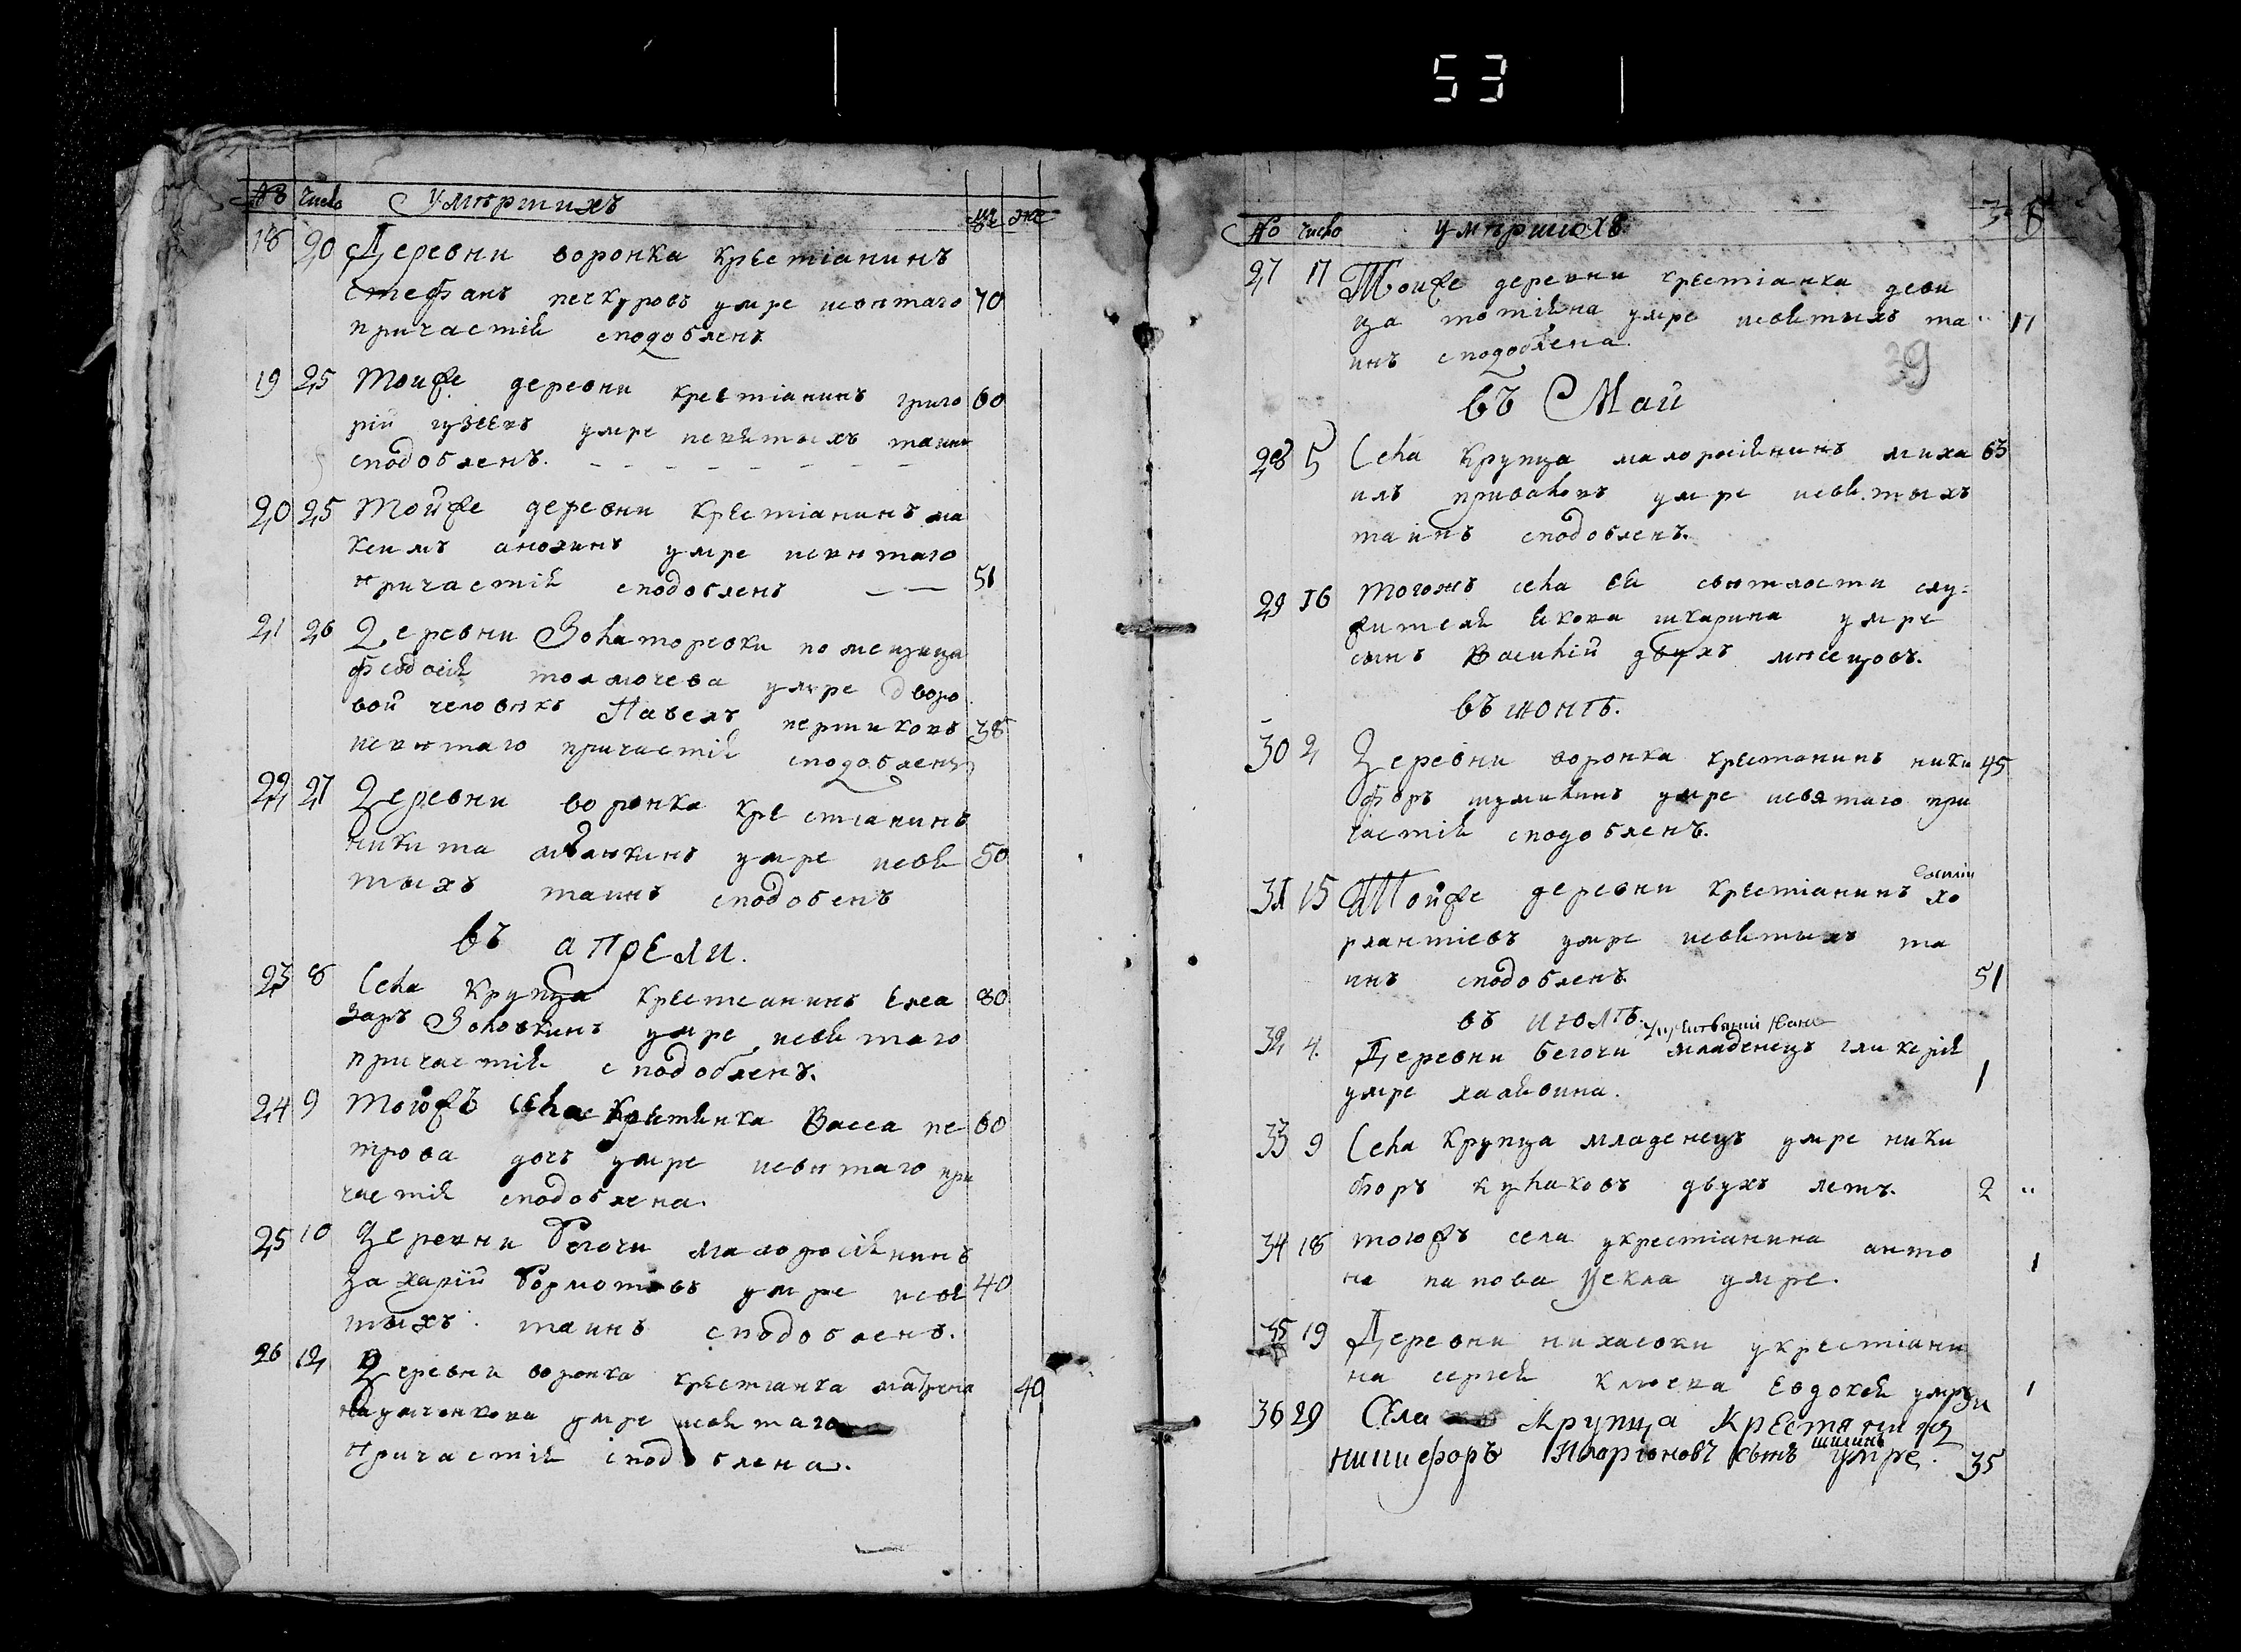 53
№ число умершихъ мъ же
18 20 Деревни воронка крестіанинъ
стефанъ умре исвятаго 70
причастія сподобленъ
19 25 Тойже деревни крестіанинъ григо 60
рій гузеевъ умре исвятыхъ таинъ
сподобленъ.
20 25 Тойже деревни крестіанинъ ма
ксимъ анохинъ умре исвятаго
причастія сподобленъ 51
21 26 Деревни Золаторевки помещица
федосія толмочева умре дворо
вой человякъ Павелъ перпиковъ 38
исвятаго причастія сподобленъ
22 27 Деревни воронка крестианинъ
никита умре исвя 50
тыхъ таинъ сподобенъ
въ апрели.
23 8 Села Крупца крестеанинъ Елеа 80
заръ Золовкинъ умре исвятаго
причастія сподобленъ.
24 9 Тогожъ села крестянка Васса пе 60
трова дочь умре исвятаго при
частія сподоблена.
25 10 Деревни Бегочи малоросіянинъ
захарій умре исвя 40
тыхъ таинъ сподобленъ.
26 12 Деревни воронка крестианка матрена 40
умре исвятаго
причастія сподоблена.
№ число умершихъ
27 17 Тойже деревни крестіанка деви
ца умре исвятыхъ та 17
инъ сподоблена.
39
въ Маи
28 5 Села Крупца малоросіянинъ миха 63
илъ приваловъ умре исвятыхъ
таинъ сподобленъ.
29 16 Тогожъ села ея святлости слу=
жителя якова шкарина умре
сынъ Василій двухъ мясецовъ.
въ июнѣ.
30 2 Деревни воронка крестанинъ ники 45
форъ шумикинъ умре исвятаго при
частія сподобленъ.
31 15 Тойже деревни крестіанинъ хо
рлантіевъ умре исвятыхъ та
инъ сподобленъ 51
въ июлѣ.
32 4. Деревни бегочи младенецъ гликерія
умре халявина. 1
33 9 Села Крупца младенецъ умре ники
форъ кулаковъ двухъ летъ. 2
34 18 Тогожъ села укрестіанина анто
на папова фекла умре. 1
35 19 Деревни укрестіани
на сергея клюева Евдокея умре 1
36 29 Села Крупца Крестянинъ
никифоръ Иларіоновъ сынъ шилинъ умре. 35